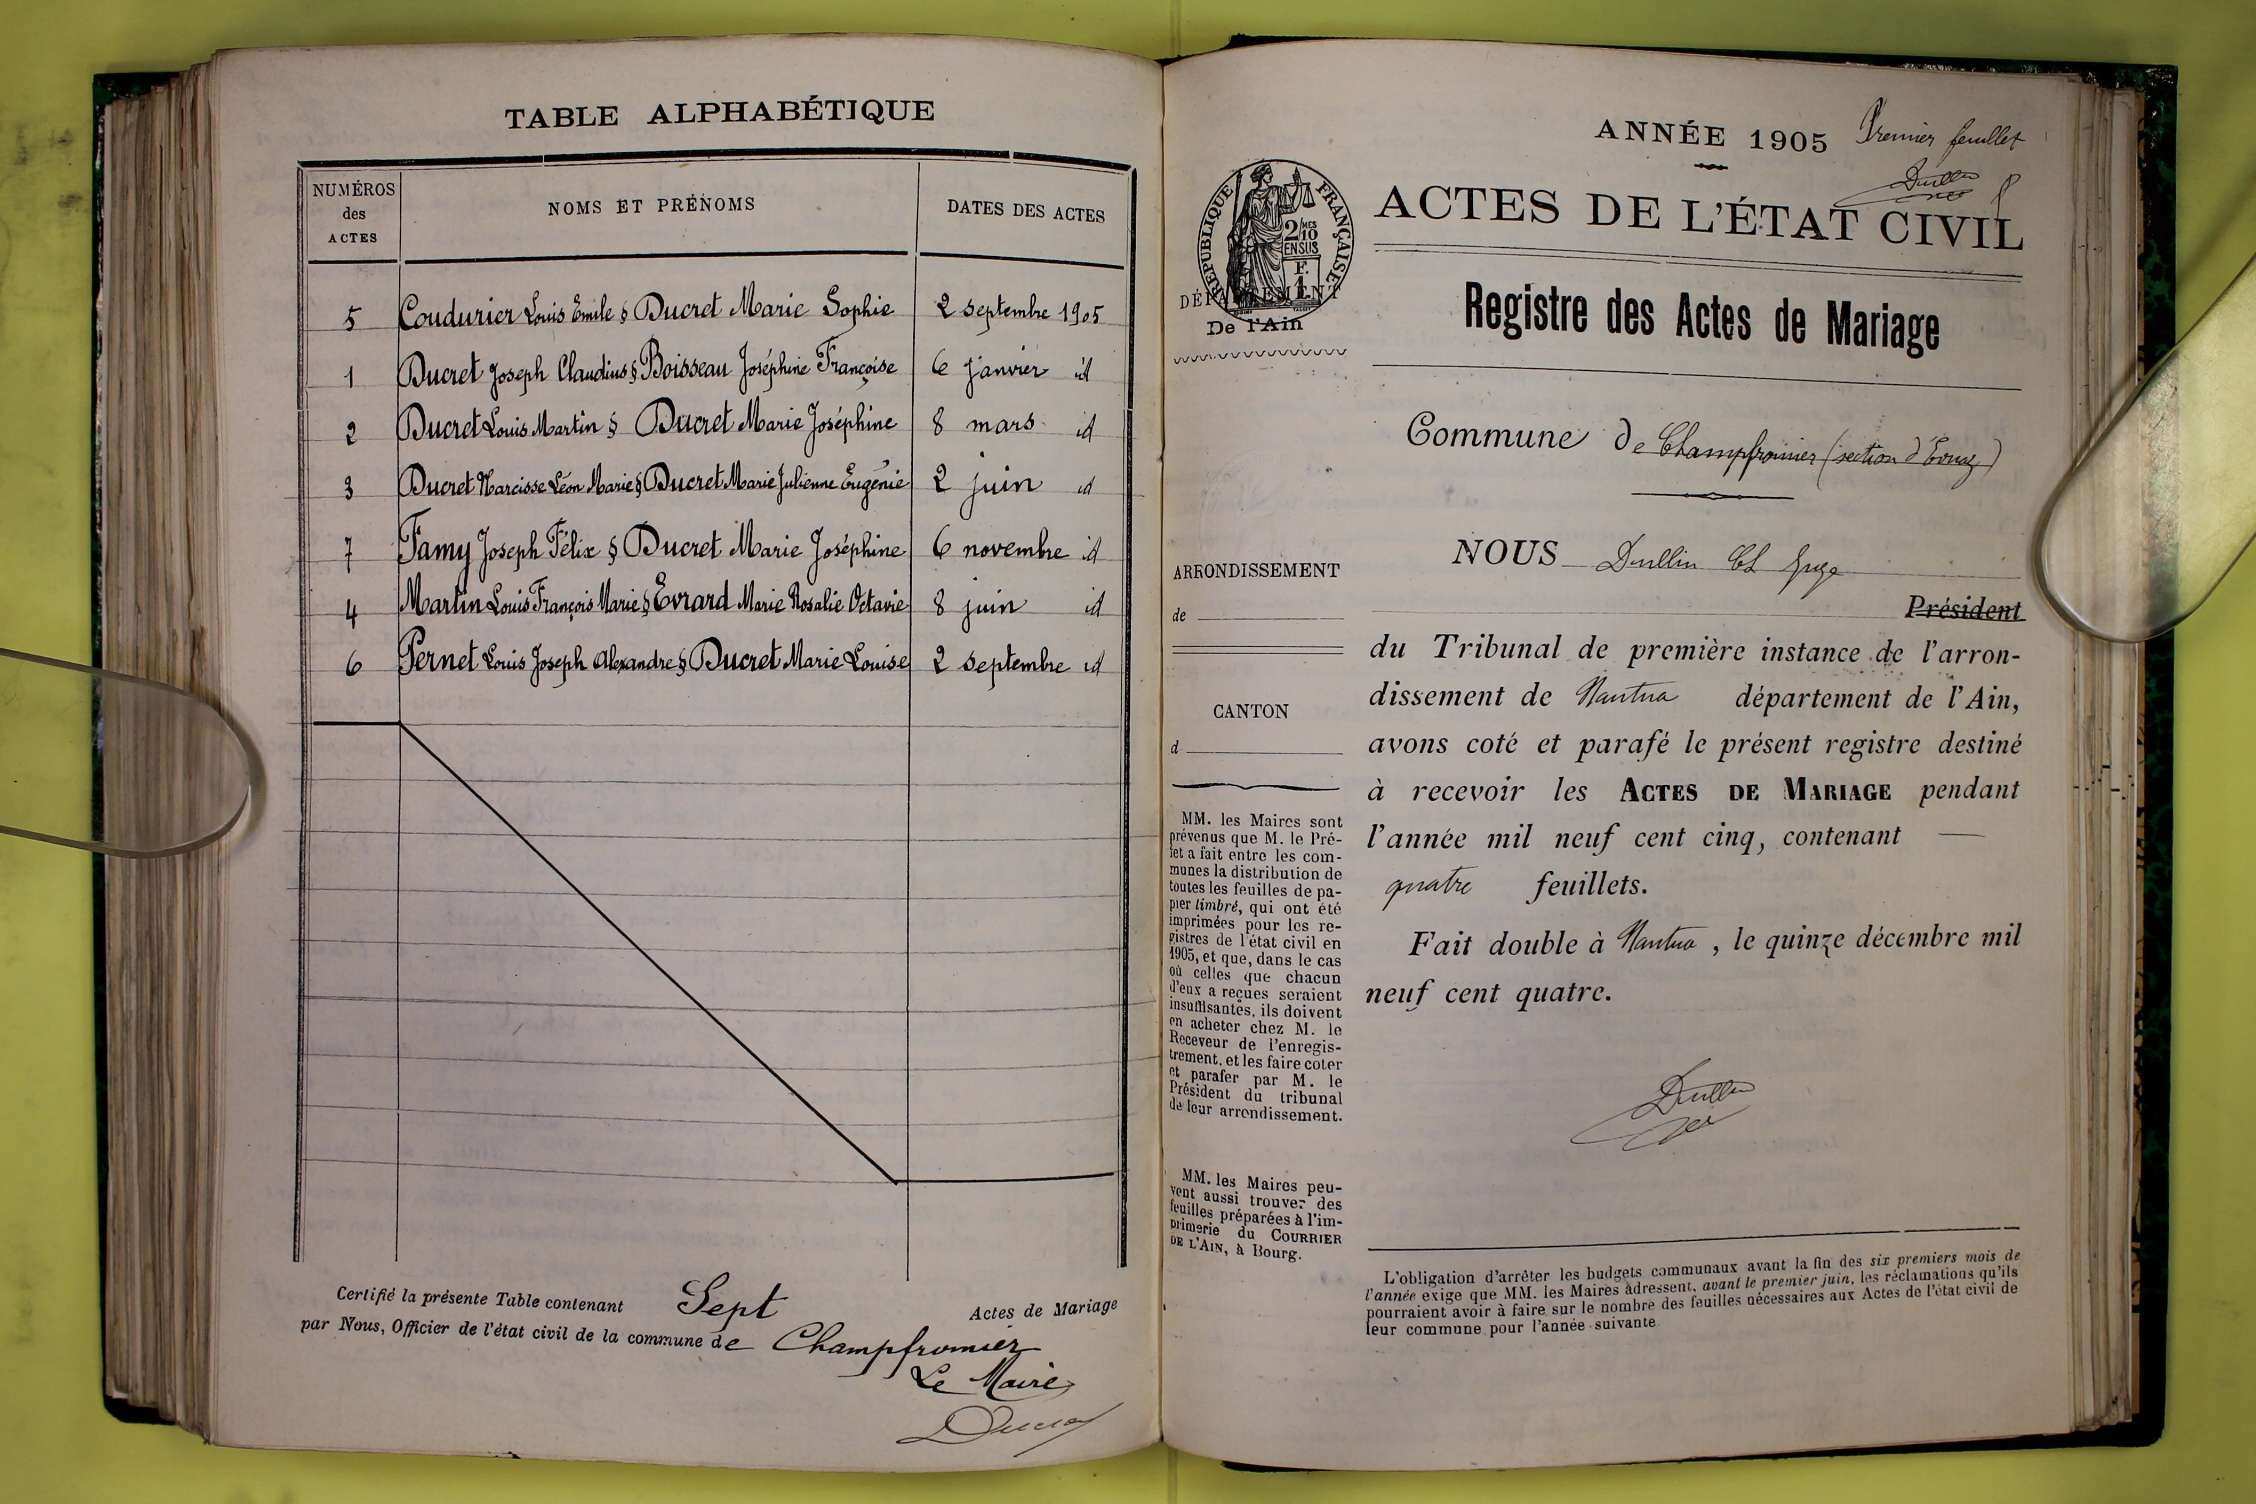 TABLE ALPHABÉTIQUE
NUMÉROS
des
ACTES
NOMS ET PRÉNOMS
DATES DES ACTES
5 Coudurier Louis Emile & Ducret Marie Sophie 2 septembre 1905
1 Ducret Joseph Claudius & Boisseau Joséphine Françoise 6 janvier id
2 Ducret Louis Martin & Ducret Marie Joséphine 8 mars id
3 Ducret Narcisse Léon Marie & Ducret Marie Julienne Eugénie 2 juin id
7 Famy Joseph Félix & Ducret Marie Joséphine 6 novembre id
4 Martin Louis François Marie & Evrard Marie Rosalie Octavie 8 juin id
6 Pernet Louis Joseph Alexandre & Ducret Marie Louise 2 septembre id
Certifié la présente Table contenant Sept Actes de Mariage
par Nous, Officier de l'état civil de la commune de Champfromier
Le Maire
ANNÉE 1905 Premier feuillet
Dullin
RÉPUBLIQUE FRANÇAISE
2/10 MES
EN SUS
F.
1
DÉPARTEMENT
De l'Ain
ACTES DE L'ÉTAT CIVIL
Registre des Actes de Mariage
Commune de Champfromier (section d'Evouaz)
NOUS Dullin Ch Juge
Président
du Tribunal de première instance de l'arron-
dissement de Nantua département de l'Ain,
avons coté et parafé le présent registre destiné
à recevoir les ACTES DE MARIAGE pendant
l'année mil neuf cent cinq, contenant —
quatre feuillets.
Fait double à Nantua, le quinze décembre mil
neuf cent quatre.
Dullin
ARRONDISSEMENT
de
CANTON
d
MM. les Maires sont
prévenus que M. le Pré-
fet a fait entre les com-
munes la distribution de
toutes les feuilles de pa-
pier timbré, qui ont été
imprimées pour les re-
gistres de l'état civil en
1905, et que, dans le cas
où celles que chacun
d'eux a reçues seraient
insuffisantes, ils doivent
en acheter chez M. le
Receveur de l'enregis-
trement, et les faire coter
et parafer par M. le
Président du tribunal
de leur arrondissement.
MM. les Maires peu-
vent aussi trouver des
feuilles préparées à l'im-
primerie du COURRIER
DE L'AIN, à Bourg.
L'obligation d'arrêter les budgets communaux avant la fin des six premiers mois de
l'année exige que MM. les Maires adressent, avant le premier juin, les réclamations qu'ils
pourraient avoir à faire sur le nombre des feuilles nécessaires aux Actes de l'état civil de
leur commune pour l'année suivante